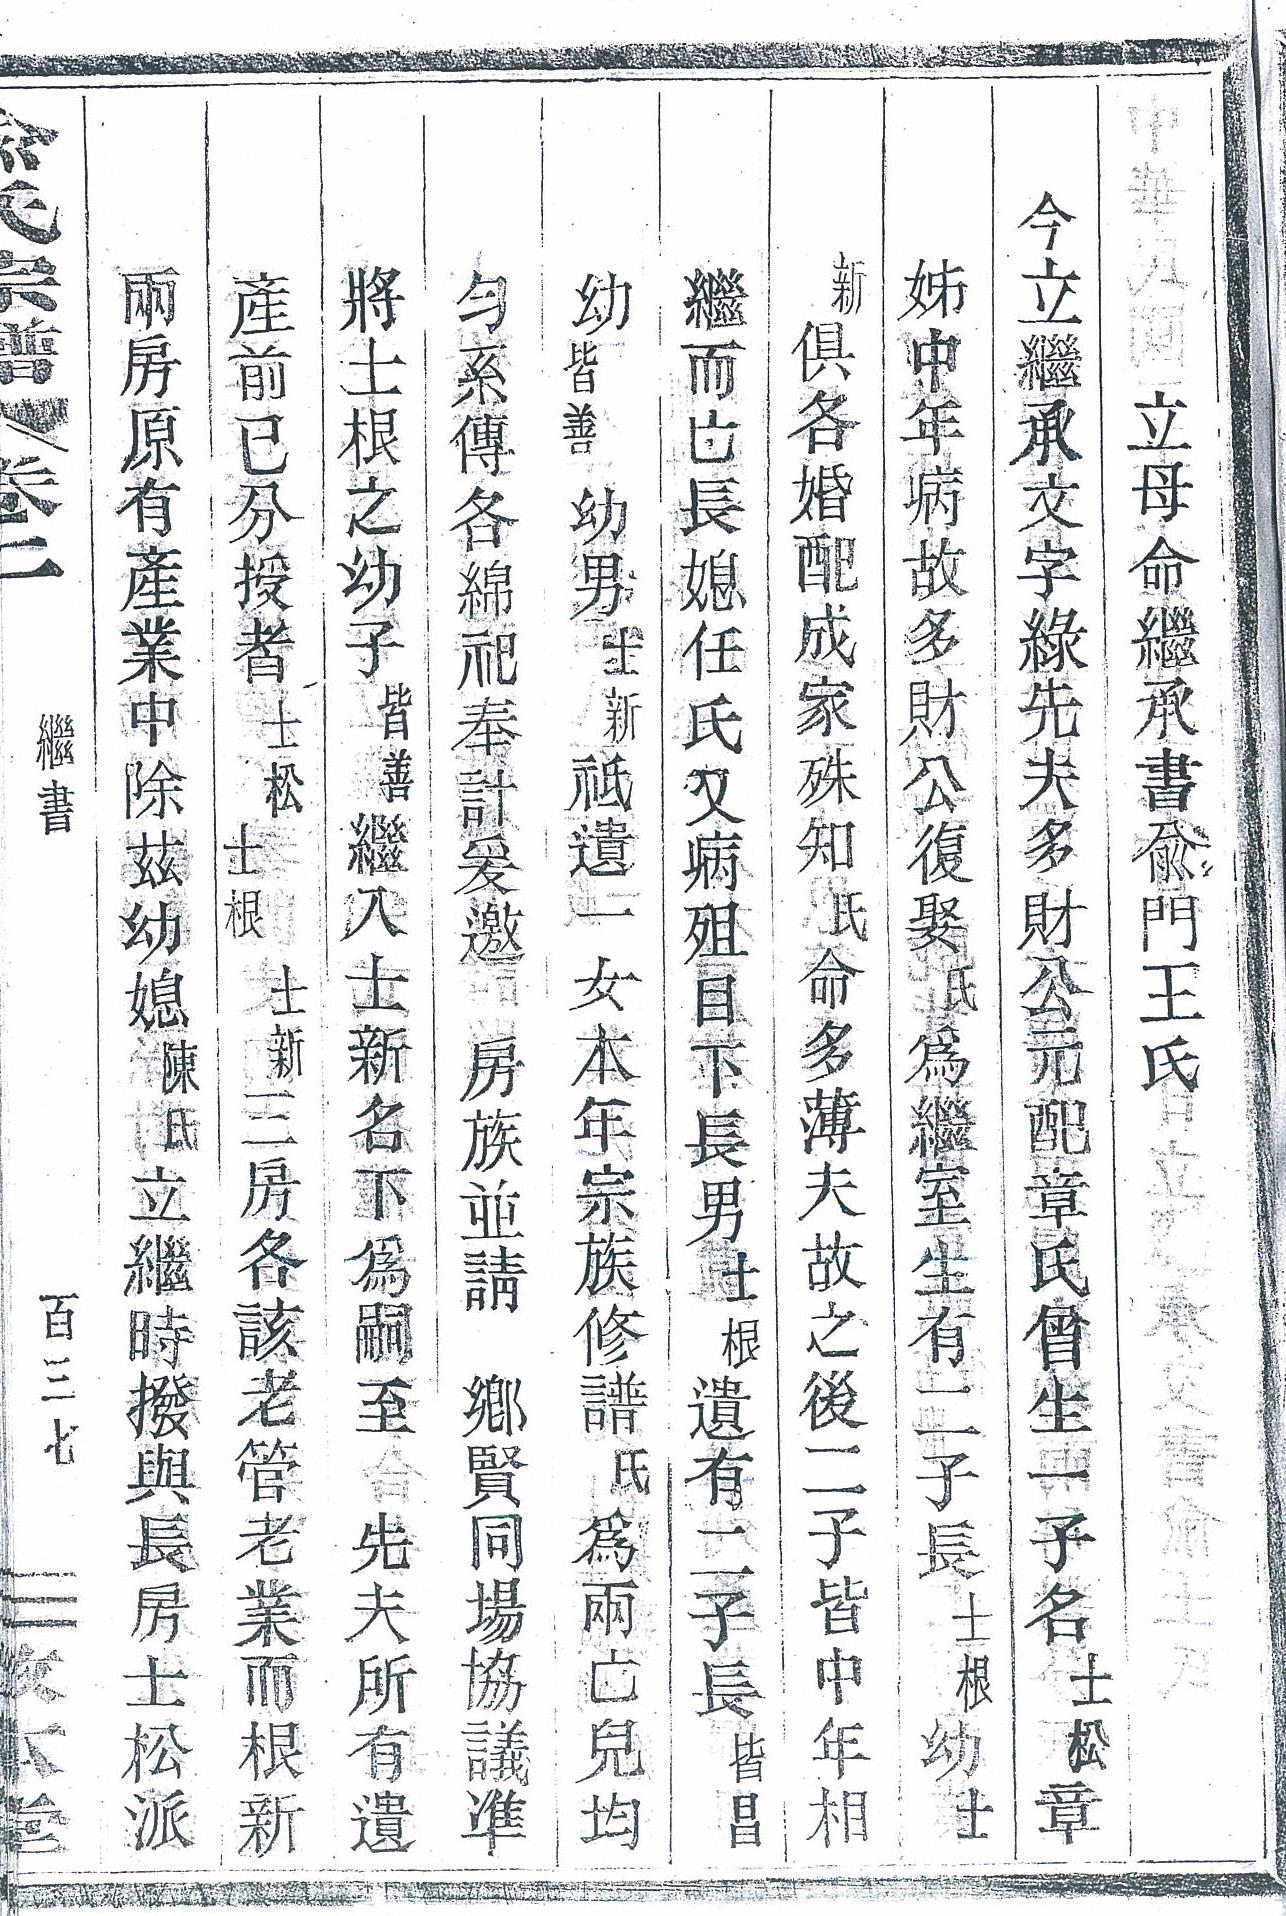 立母命繼承書俞門王氏
今立繼承文字緣先夫多財公元配章氏曾生一子名士松章
姊中年病故多財公復娶氏為繼室生有二子長士根幼士
新俱各婚配成家殊知氏命多薄夫故之後二子皆中年相
繼而亡長媳任氏又病殂目下長男士根遺有二子長皆昌
幼皆善幼男士新祗遺一女本年宗族修譜氏為兩亡兒均
勻系傳各綿祀奉計爰邀房族並請鄉賢同場協議準
將士根之幼子皆善繼入士新名下為嗣至先夫所有遺
產前已分授者士松士根士新三房各該老管老業而根新
兩房原有產業中除茲幼媳陳氏立繼時撥與長房士松派
俞氏宗譜 卷二 繼書 百三七